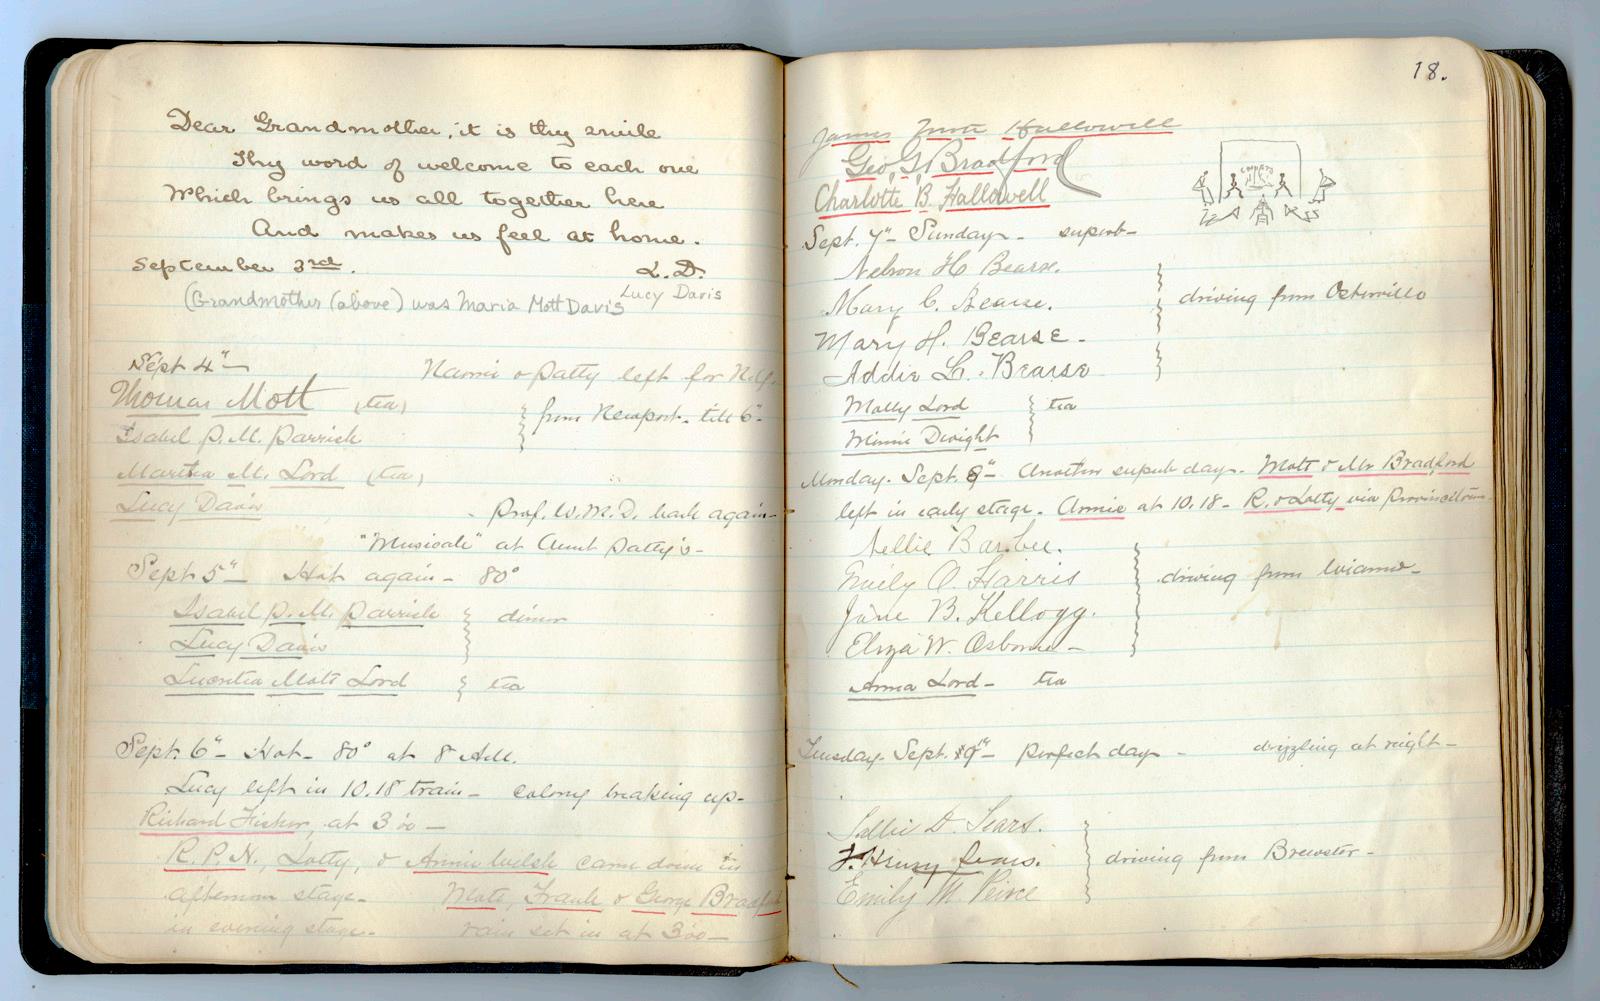 Dear Grandmother, it is thy smile
Thy word of welcome to each one
Which brings us all together here
And makes us feel at home.
September 3rd.
L. D.
Lucy Davis
(Grandmother (above) was Maria Mott Davis
Sept 4" —
Nannie & Patty left for N.Y.
Thomas Mott (tea)
from Newport - till 6"-
Isabel P. M. Parrish
Martha M. Lord (tea)
Lucy Davis
- Prof. W. M. D. back again -
"Musicale" at Aunt Patty's -
Sept 5" - Hot again - 80°
Isabel P. M. Parrish
dinner
Lucy Davis
Lucretia Mott Lord
tea
Sept. 6" - Hot - 80° at 8 A.M.
Lucy left in 10.18 train - colony breaking up -
Richard Fisher, at 3'00 -
R. P. H., Lotty, & Annie Welsh came down in
afternoon stage -
Mott, Frank & George Bradford
in evening stage -
rain set in at 3'00 -
18.
James Mott Hallowell
Geo. G. Bradford
Charlotte B. Hallowell
COMBATS
Sept. 7" - Sunday - superb -
Nelson H. Bearse.
Mary C. Bearse.
driving from Osterville
Mary H. Bearse -
Addie L. Bearse
Molly Lord
tea
Minnie Dwight
Monday - Sept. 8" - Another superb day - Mott & Mr Bradford
left in early stage - Annie at 10.18 - R. & Lotty via Provincetown -
Nellie Barbee.
Emily O. Harris
driving from Wianno -
Jane B. Kellogg.
Eliza W. Osborne -
Anna Lord - tea
Tuesday - Sept. 9" - perfect day - drizzling at night -
Sallie D. Sears.
J. Henry Sears.
driving from Brewster -
Emily M. Peirce